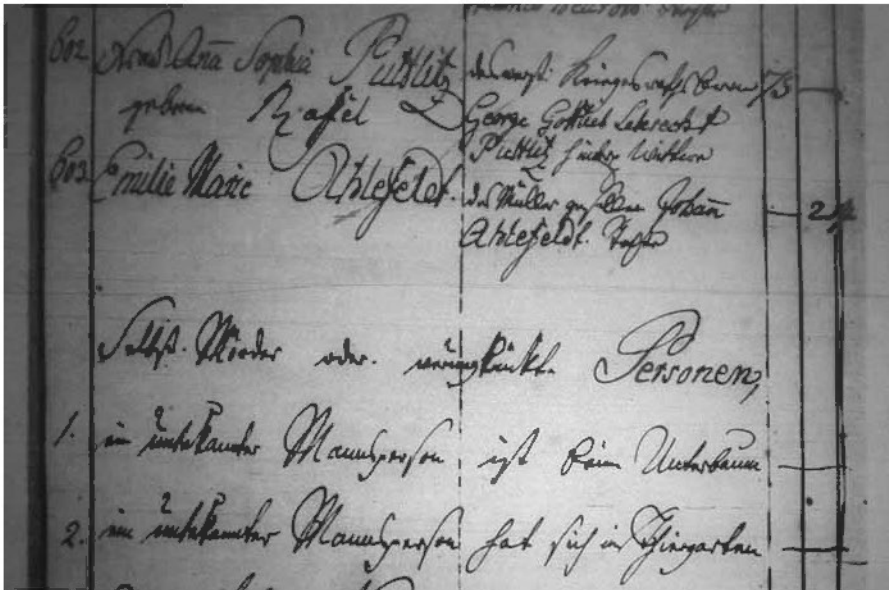 602. Anna Sophia Puttlitz des verst. Kriegesraths
geboren
George Gottlieb Leberecht
Puttlitz hinterl. Wittwe
603. Emilie Marie Ahlefeldt. des Müller gesellen Johann
Ahlefeldt. Tochter
Selbst-Mörder oder verunglückte Personen,
1. ein unbekannter Mannsperson ist beim Unterbaum
2. ein unbekannter Mannsperson hat sich im Thiergarten